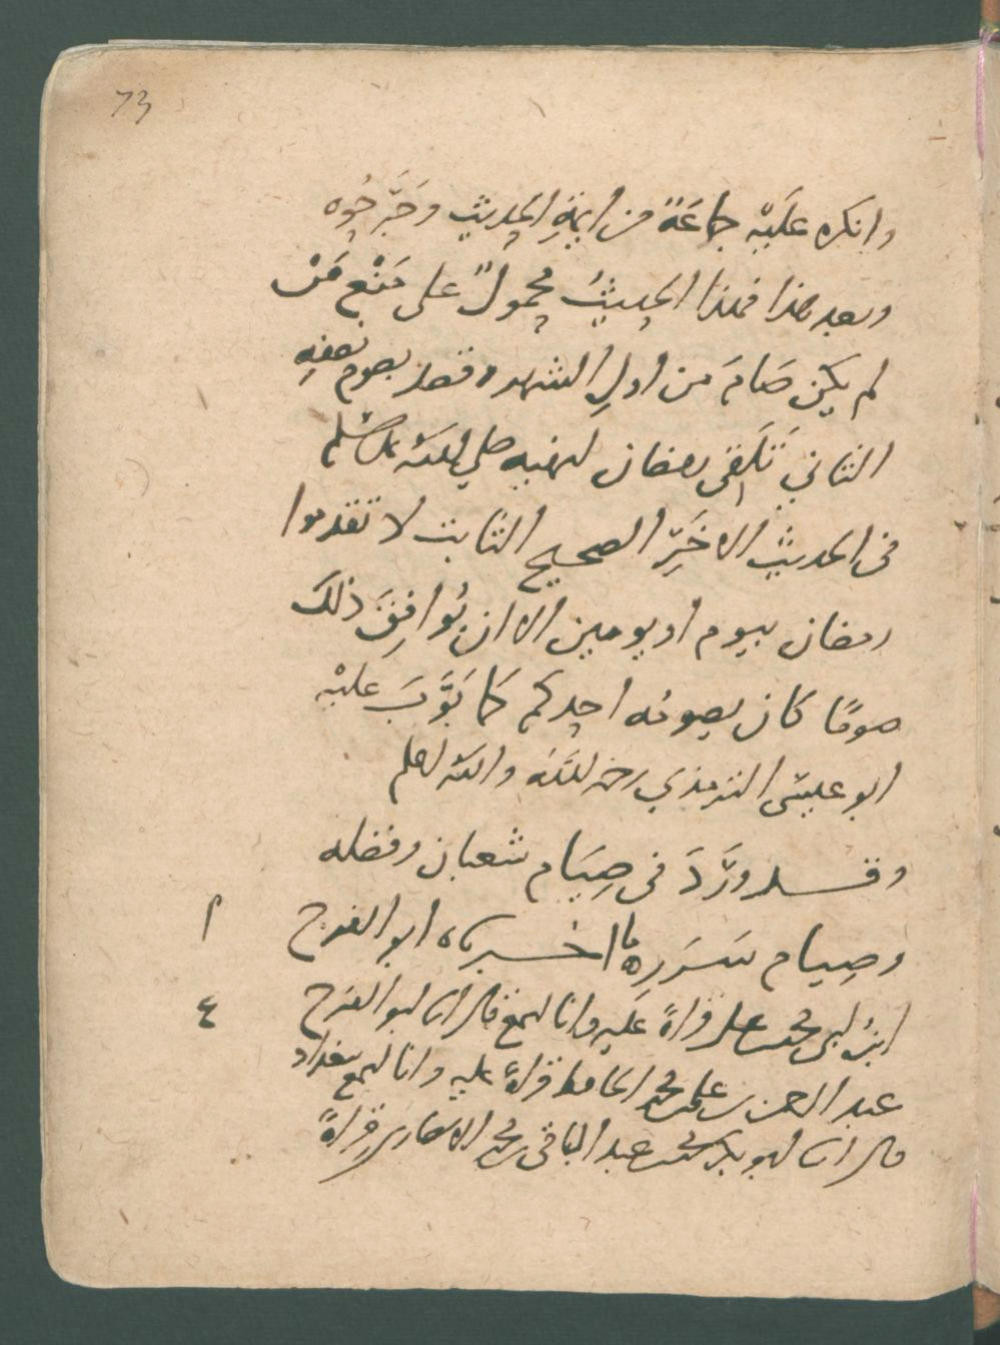 73
وانكره عَلَيْه جماعَةً من ايمةِ الحديثِ وجَرَّحُوه
وبعد هذا فهذا الحديثُ محمولٌ على مَنْع مَنْ
لم يكن صَامَ من اولِ الشهر وقصد بصوم نصفِهِ
الثاني تَلَقى رمضان لنهيه صلى الله عليه وسلم
فى الحديثِ الاخَرِ الصحيح الثابت لا تقدموا
رمضان بيوم او يومين الا ان يُوافِقَ ذلك
صومًا كان يصومُه احدكم كما بَوَّبَ عليْه
ابو عيسَى الترمذي رحمه الله والله اعلم
وقد ورَدَ فى صِيَام شعبان وفضله
وصِيام سَرَرِه ما اخبرناه ابو الفرج
ابنُ ابى محمد بن على قراةً عليه وانا اسمع قال انا ابو الفرج
عبد الرحمن بن على بن محمد الحافظ قراةً عليه وانا اسمع ببغداد
قال انا ابو بكر محمد بن عبد الباقى بن محمد الانصارى قراةً
م
٤